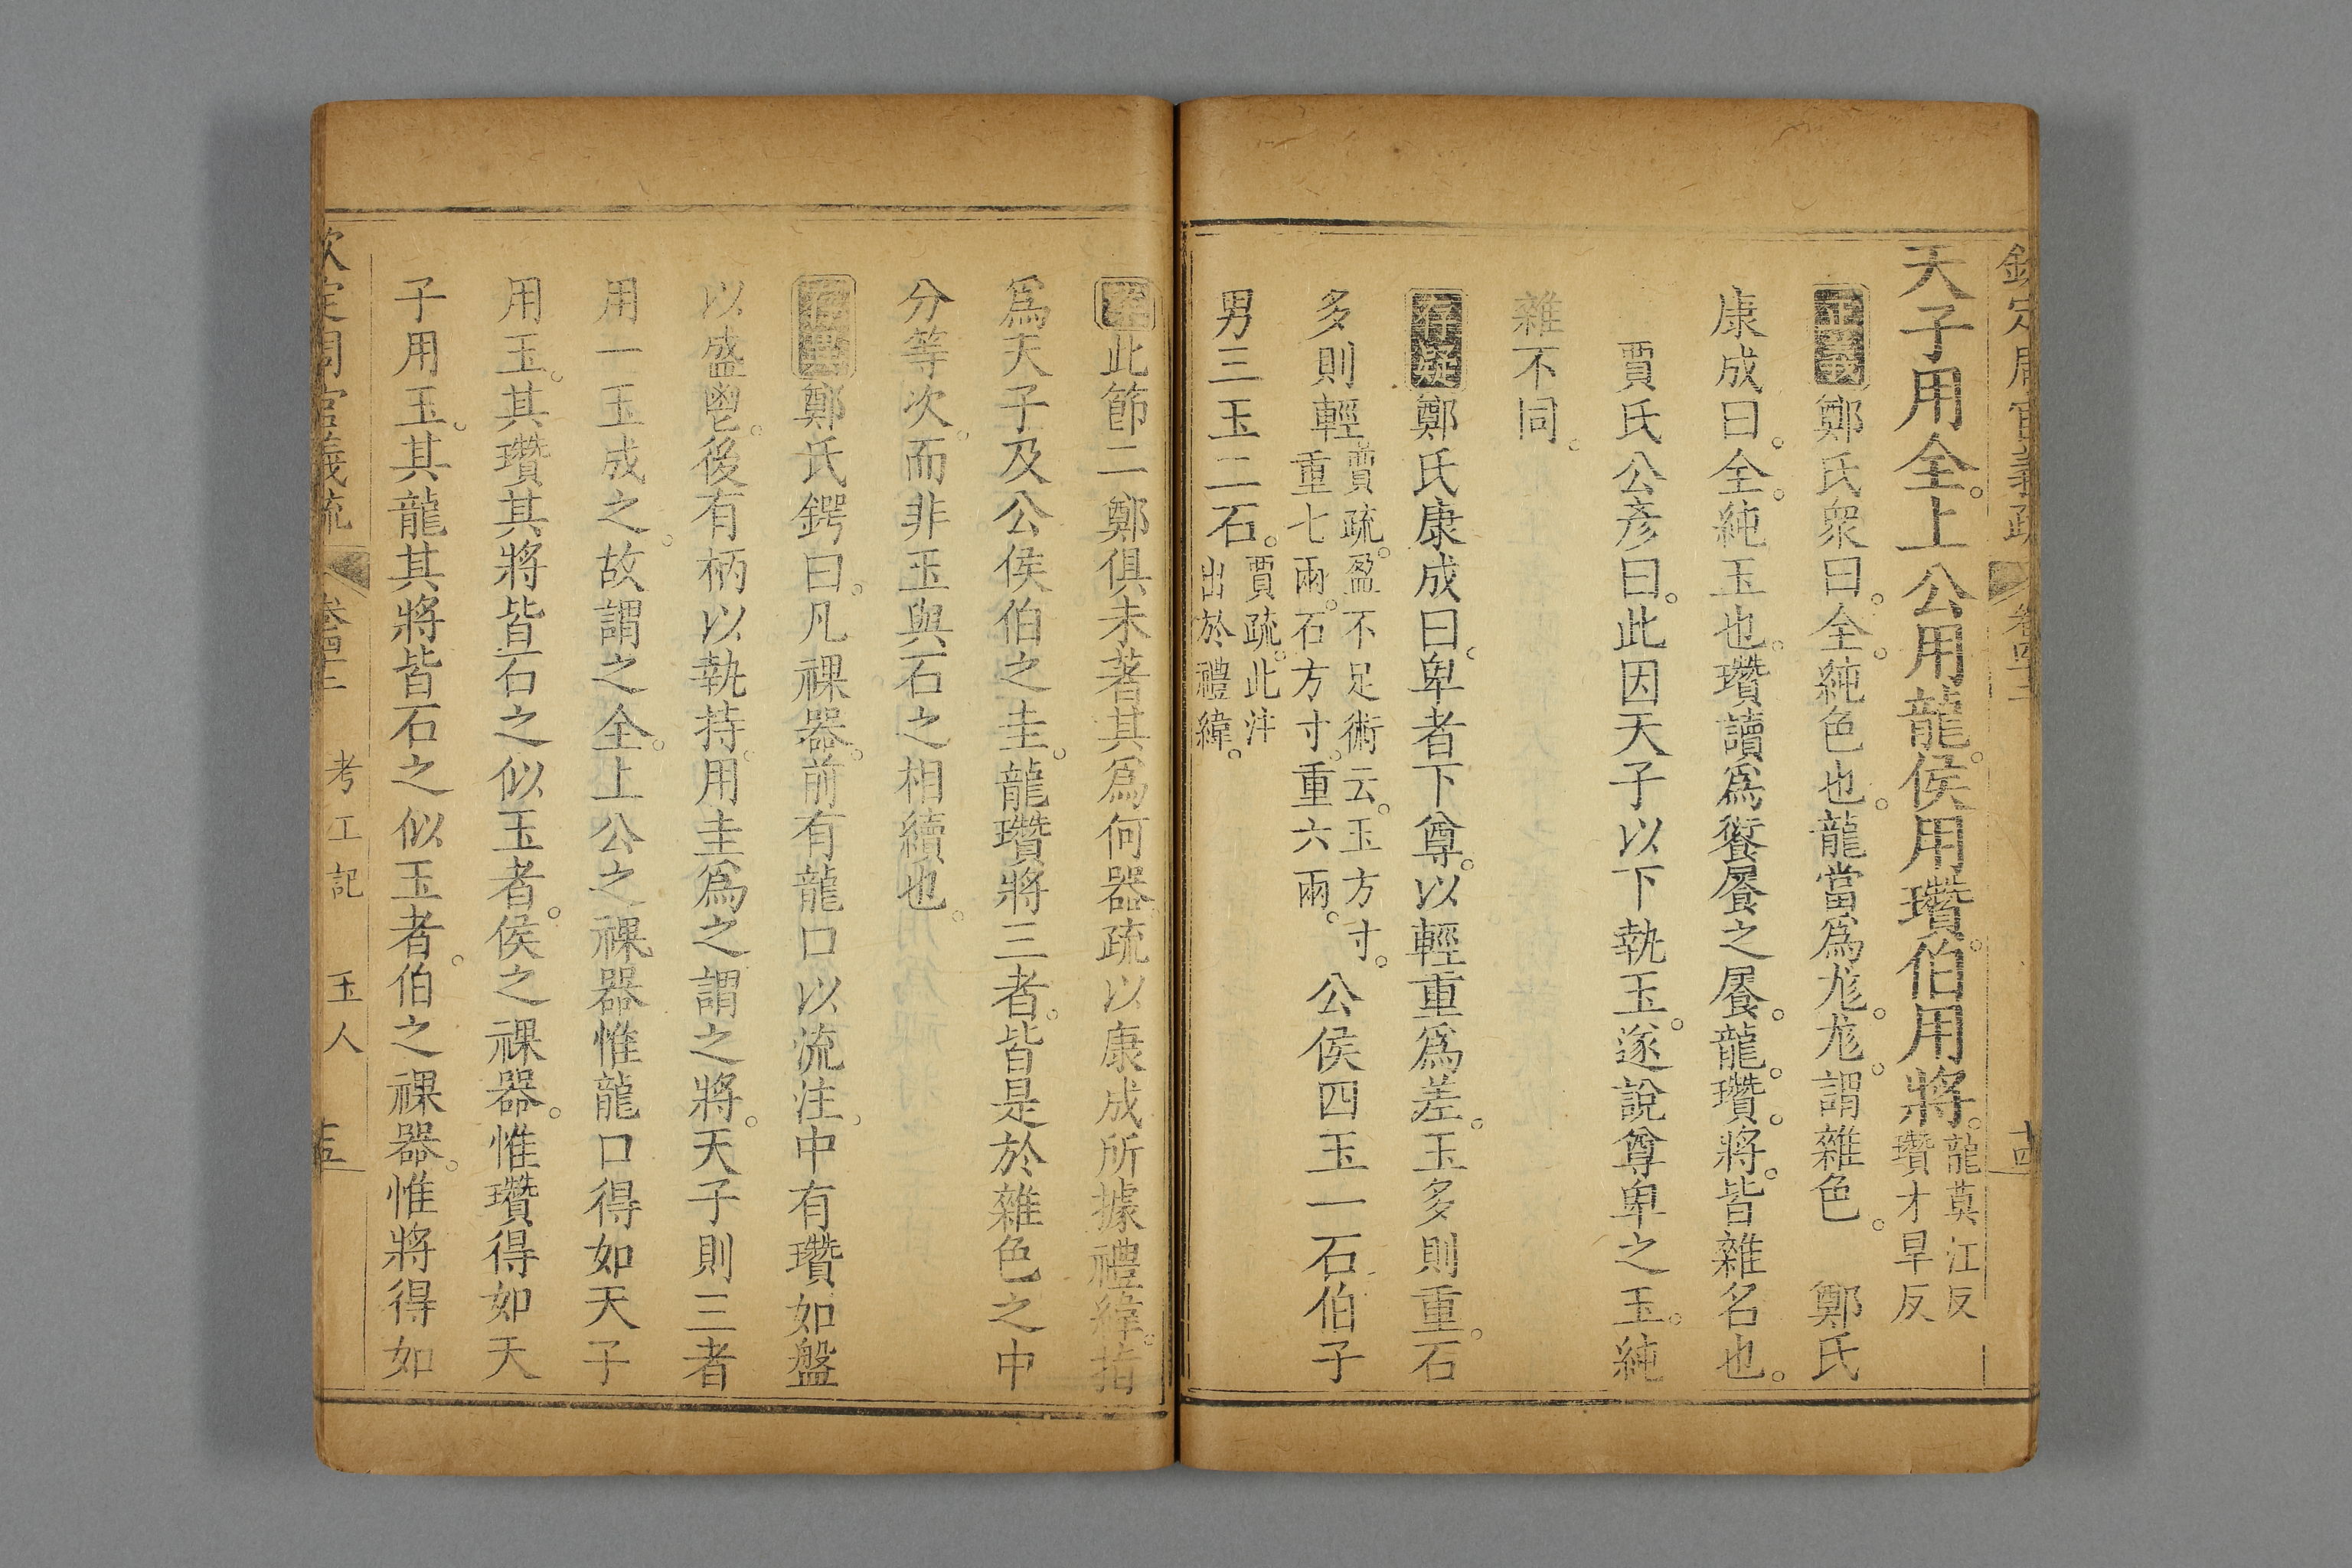 欽定周官義疏 卷四十二 十四
天子用全。上公用龍。侯用瓚。伯用將。龍莫江反
瓚才旱反
正義鄭氏衆曰。全。純色也。龍當爲尨。尨。謂雜色。 鄭氏
康成曰。全。純玉也。瓚讀爲餐饡之饡。龍。瓚。將。皆雜名也。
賈氏公彥曰。此因天子以下執玉。遂說尊卑之玉。純
雜不同。
存疑鄭氏康成曰。卑者下尊。以輕重爲差。玉多則重。石
多則輕。賈疏。盈不足術云。玉方寸。
重七兩。石方寸。重六兩。
公侯四玉一石伯子
男三玉二石。賈疏。此注
出於禮緯。
案此節二鄭俱未著其爲何器疏以康成所據禮緯。
爲天子及公侯伯之圭。龍瓚將三者。皆是於雜色之中
分等次。而非玉與石之相續也。
鄭氏鍔曰。凡祼器。前有龍口以流注。中有瓚如盤
以盛鬯。後有柄以執持。用圭爲之謂之將。天子則三者
用一玉成之。故謂之全。上公之祼器惟龍口得如天子
用玉。其瓚其將皆石之似玉者。侯之祼器。惟瓚得如天
子用玉。其龍其將皆石之似玉者。伯之祼器。惟將得如
欽定周官義疏 卷四十二 考工記 玉人 十五